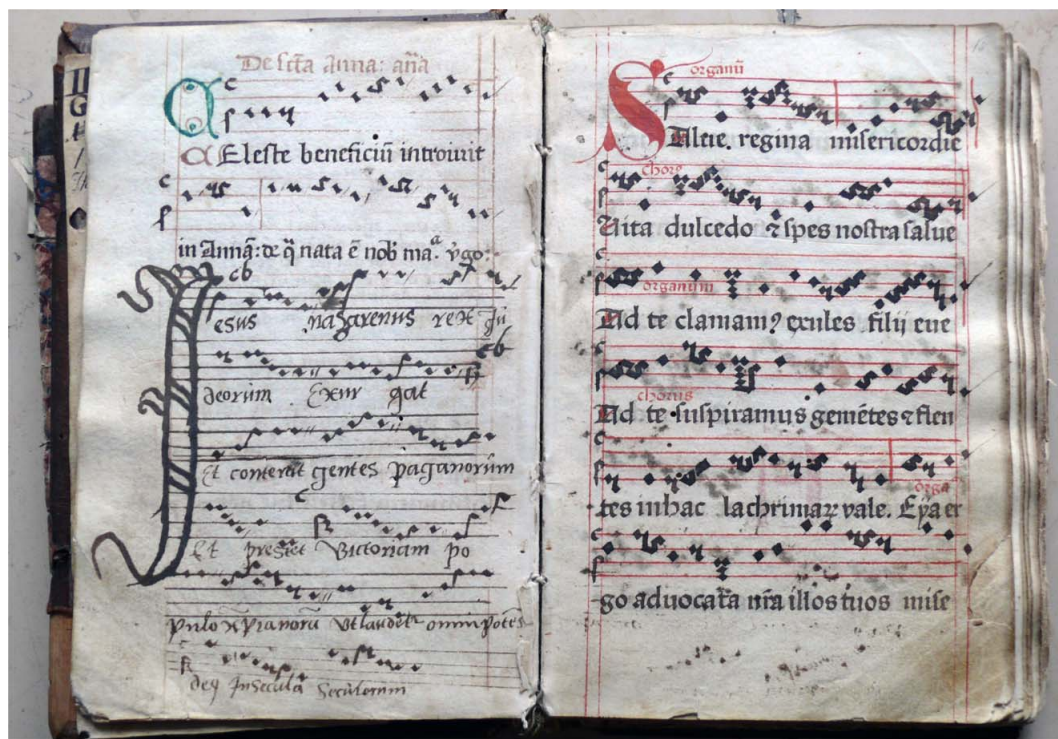 De scta anna: aña
CAEleste beneficiũ introiuit
in Annã: de q̃ nata ẽ nob̃ maᵃ v̾go:
esus nazarenus rex Ju
deorum Exur gat
Et conterat gentes paganorum
Et prestet victoriam po
pulo xp̃ianorũ ut laudet omnipotẽs
deq in secula seculorum
organũ
SAlue. regina misericordie
chorꝯ
Uita dulcedo ⁊ spes nostra salue
organum
Ad te clamamꝰ exules filij eue
chorus
Ad te suspiramus gemẽtes ⁊ flen
tes in hac lachrimaꝝ vale. Eya er
orga
go aduocata nr̃a illos tuos mise